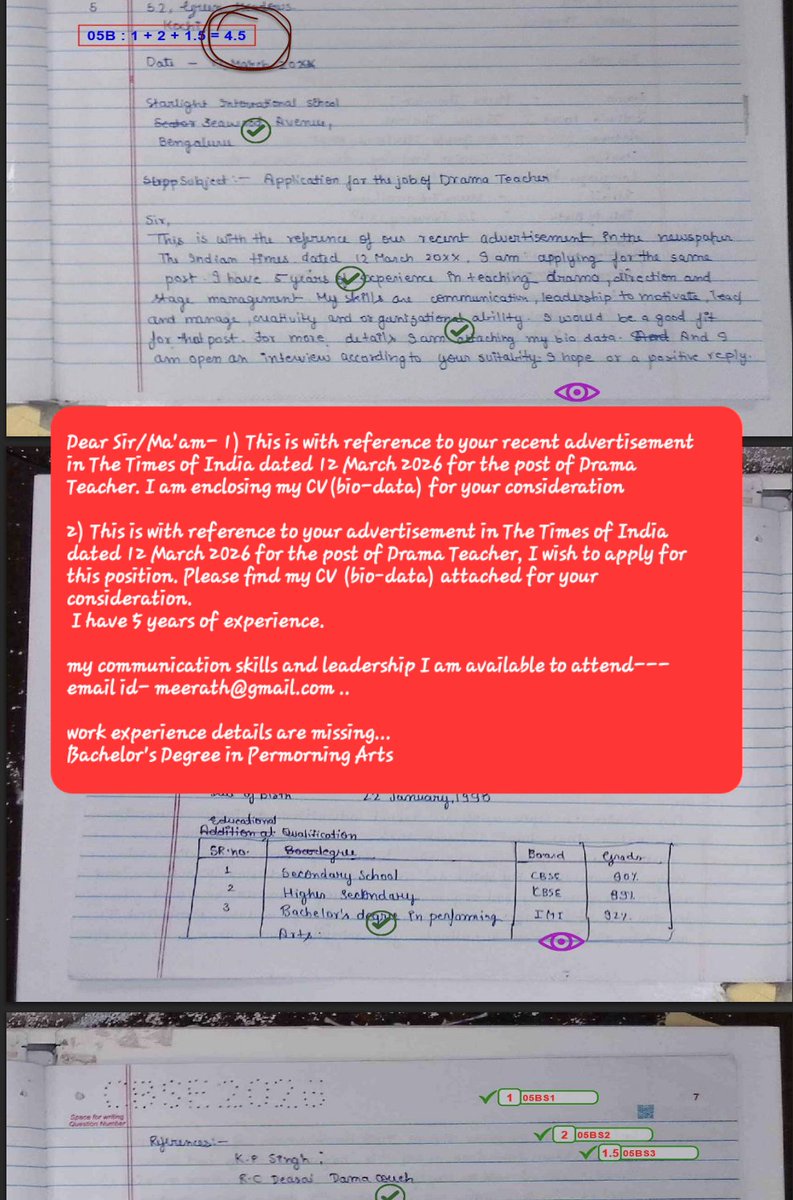 5
52, Green
05B : 1 + 2 + 1.5 = 4.5
Date - March 20xx
Starlight International School
Avenue,
Bengaluru
Subject :- Application for the job of Drama Teacher
Sir,
This is with the refrence of our recent advertisement in the newspaper
The Indian times dated 12 March 20xx. I am applying for the same
post. I have 5 years of experience in teaching drama, direction and
stage management. My skills are communication, leadership to motivate, lead
and manage, creativity and organizational ability. I would be a good fit
for that post. For more details I am attaching my bio data. And I
am open an interview according to your suitability. I hope or a positive reply.
Dear Sir/Ma'am- 1) This is with reference to your recent advertisement
in The Times of India dated 12 March 2026 for the post of Drama
Teacher. I am enclosing my CV(bio-data) for your consideration
2) This is with reference to your advertisement in The Times of India
dated 12 March 2026 for the post of Drama Teacher, I wish to apply for
this position. Please find my CV (bio-data) attached for your
consideration.
I have 5 years of experience.
my communication skills and leadership I am available to attend---
email id- meerath@gmail.com ..
work experience details are missing...
Bachelor's Degree in Permorning Arts
of birth 22 January, 1990
Educational
Qualification
SR.no. degree Board Grade
1 Secondary School CBSE 90%
2 Higher Secondary CBSE 89%
3 Bachelor's degree in performing IMI 92%
Arts.
CBSE2026
1 05BS1
7
Space for writing
Question Number
2 05BS2
References:-
1.5 05BS3
K.P Singh :
R.C Deasai Dama couch